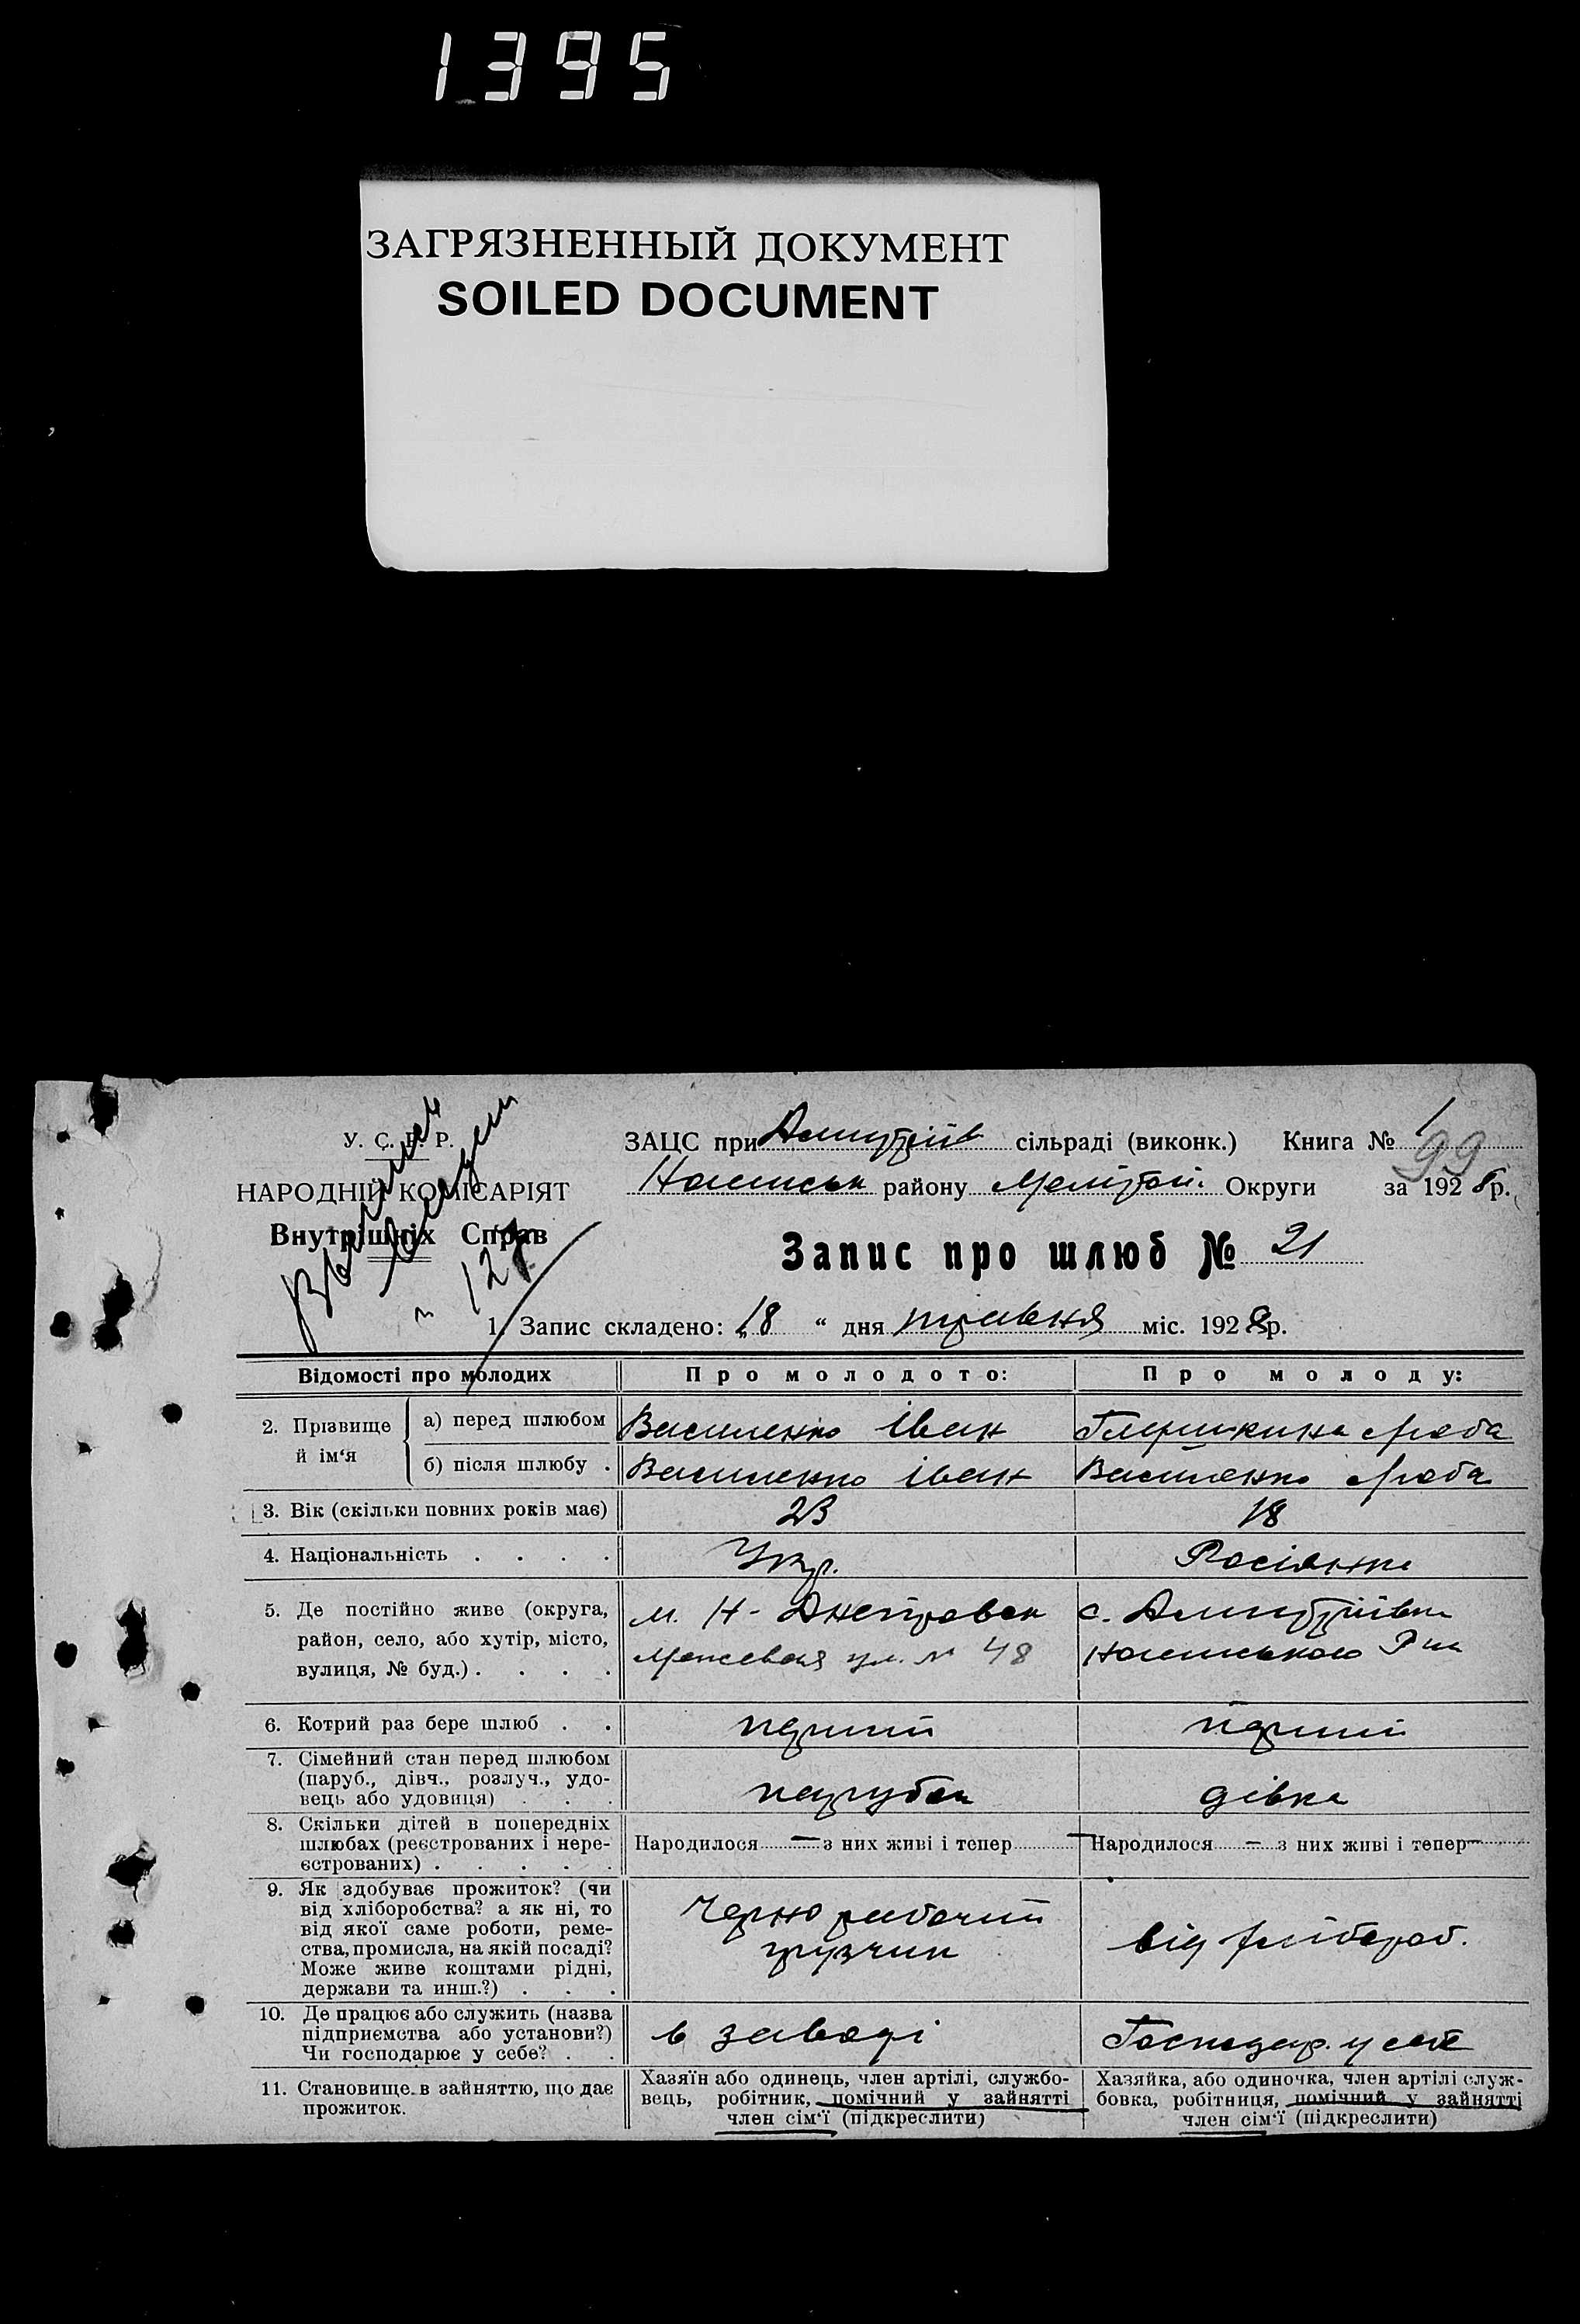 1395
ЗАГРЯЗНЕННЫЙ ДОКУМЕНТ
SOILED DOCUMENT
У. С. Р. Р.
НАРОДНІЙ КОМІСАРІЯТ
Внутрішніх Справ
ЗАЦС при сільраді (виконк.) Книга № 1
99
району Округи за 1928 р.
Запис про шлюб № 21
1. Запис складено: „18 “ дня травня міс. 1928 р.
Відомості про молодих
Про молодого:
Про молоду:
2. Прізвище й ім‘я
а) перед шлюбом
Василенко Іван
б) після шлюбу .
Василенко Іван
Василенко
3. Вік (скільки повних років має)
23
18
4. Національність . . . .
Укр.
Росіянка
5. Де постійно живе (округа,
район, село, або хутір, місто,
вулиця, № буд.) . . . .
м. Н-
ул. № 48
с.
6. Котрий раз бере шлюб . .
перший
перший
7. Сімейний стан перед шлюбом
(паруб., дівч., розлуч., удо-
вець або удовиця) . . .
парубок
дівка
8. Скільки дітей в попередніх
шлюбах (реєстрованих і нере-
єстрованих) . . . . .
Народилося — з них живі і тепер —
Народилося — з них живі і тепер —
9. Як здобуває прожиток? (чи
від хліборобства? а як ні, то
від якої саме роботи, реме-
ства, промисла, на якій посаді?
Може живе коштами рідні,
держави та инш.?) . . .
Чорно рабочий
грузчик
від хлібороб.
10. Де працює або служить (назва
підприємства або установи?)
Чи господарює у себе? . .
в заводі
Господар. у себе
11. Становище в зайняттю, що дає
прожиток.
Хазяїн або одинець, член артілі, службо-
вець, робітник, помічний у зайнятті
член сім‘ї (підкреслити)
Хазяйка, або одиночка, член артілі служ-
бовка, робітниця, помічний у зайнятті
член сім‘ї (підкреслити)